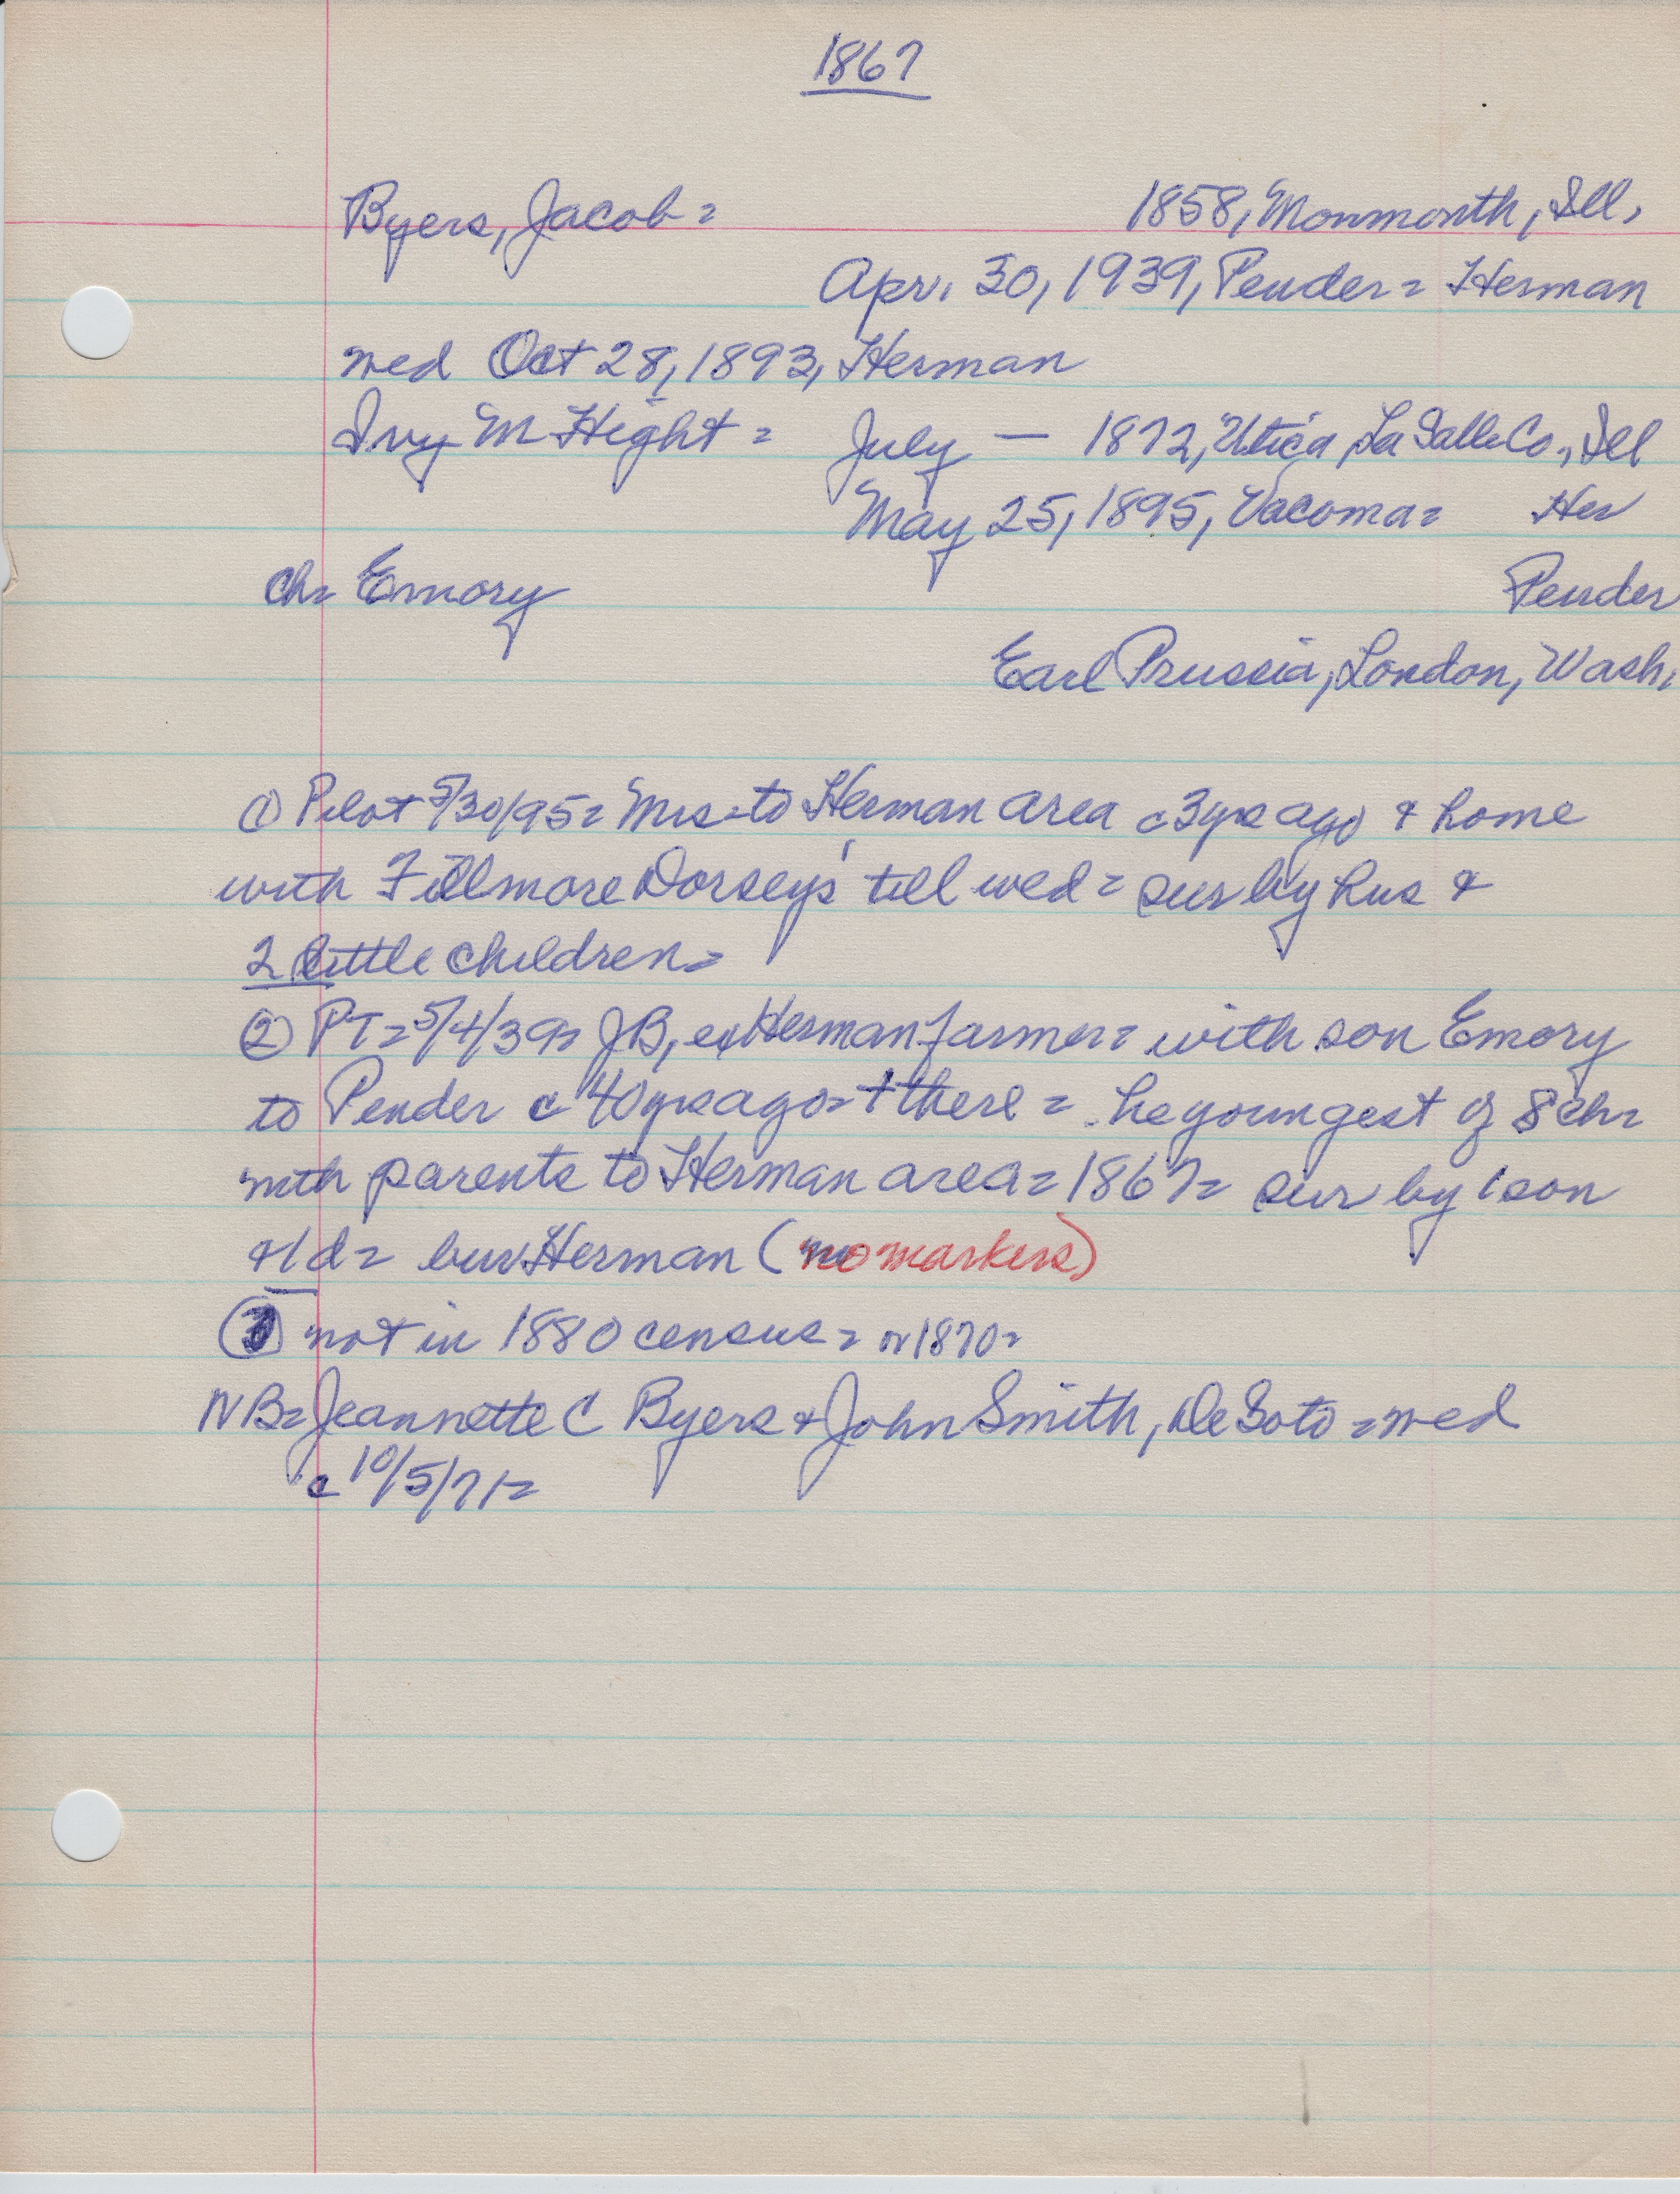 1867
Byers, Jacob = 1858, Monmonth, Ill,
Apr. 30, 1939, Pender = Herman
wed Oct 28, 1893, Herman
Ivy M Hight = July — 1872, Utica, La Salle Co., Ill
May 25, 1895, Vacoma = Her
ch = Emory Pender
Earl Prussia, London, Wash,
① Pilot 5/30/95 = Mrs = to Herman area c 3 yrs ago & home
with Fillmore Dorseys' till wed = sur by hus &
2 little children =
② PT = 5/4/39 = JB, ex Herman farmer = with son Emory
to Pender c 40 yrs ago = + there = he youngest of 8 ch =
with parents to Herman area = 1867 = sur by 1 son
& 1 d = bur Herman (no markers)
③ not in 1880 census = or 1870 =
NB = Jeannette C Byers & John Smith, De Soto = wed
c 10/5/71 =